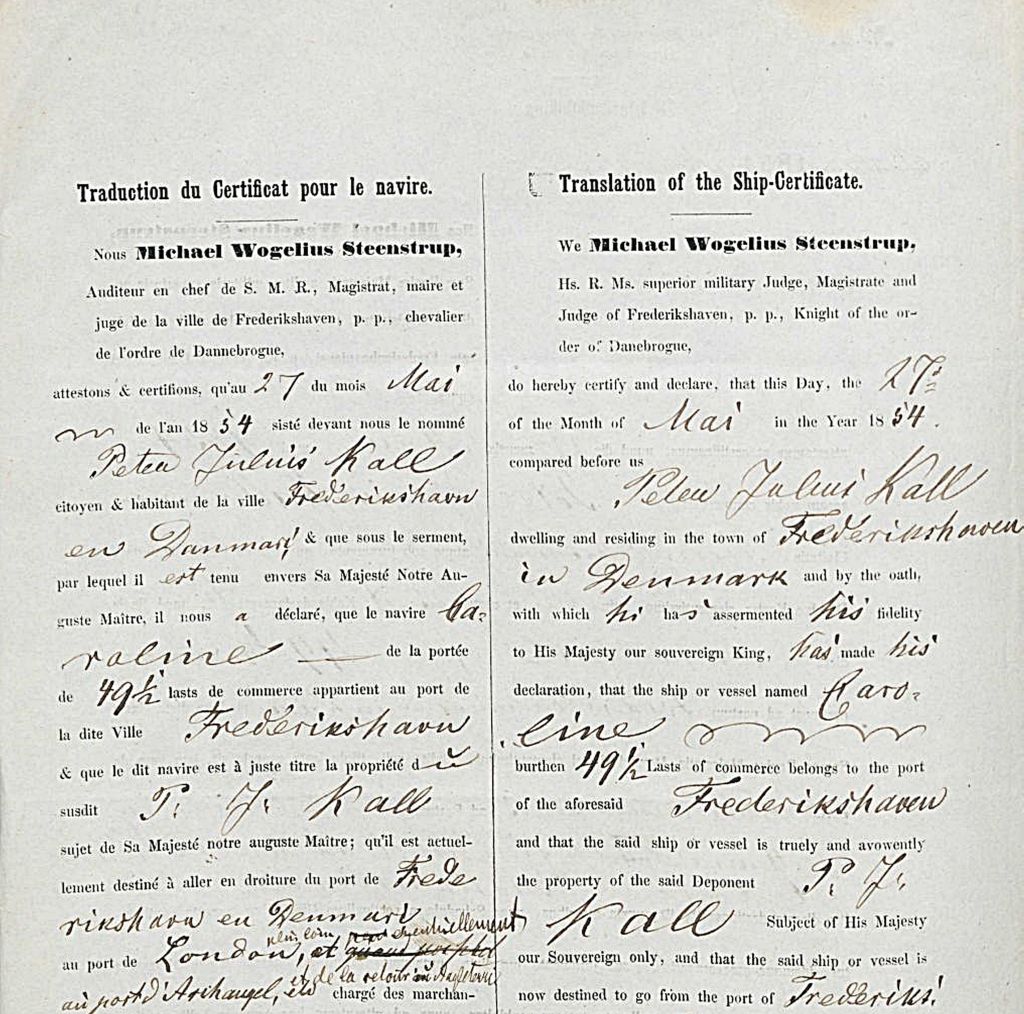 Traduction du Certificat pour le navire.
Nous Michael Wogelius Steenstrup,
Auditeur en chef de S. M. R., Magistrat, maire et
juge de la ville de Frederikshaven, p. p., chevalier
de l'ordre de Dannebrogue,
attestons & certifions, qu'au 27 du mois Mai
de l'an 1854 sisté devant nous le nommé
Peter Julius Kall
citoyen & habitant de la ville Frederikshavn
en Danmark & que sous le serment,
par lequel il est tenu envers Sa Majesté Notre Au-
guste Maître, il nous a déclaré, que le navire Ca-
roline de la portée
de 49½ lasts de commerce appartient au port de
la dite Ville Frederikshavn
& que le dit navire est à juste titre la propriété du
susdit P. J. Kall
sujet de Sa Majesté notre auguste Maître; qu'il est actuel-
lement destiné à aller en droiture du port de Frede
rikshavn en Denmark
eventuellement
au port de London, et
et de la retour
au port d'Archangel, chargé des marchan-
Translation of the Ship-Certificate.
We Michael Wogelius Steenstrup,
Hs. R. Ms. superior military Judge, Magistrate and
Judge of Frederikshaven, p. p., Knight of the or-
der of Danebrogue,
do hereby certify and declare, that this Day, the 27
of the Month of Mai in the Year 1854.
compared before us
Peter Julius Kall
dwelling and residing in the town of Frederikshaven
in Denmark and by the oath,
with which he has assermented his fidelity
to His Majesty our souvereign King, has made his
declaration, that the ship or vessel named Caro-
line
burthen 49½ Lasts of commerce belongs to the port
of the aforesaid Frederikshaven
and that the said ship or vessel is truely and avowently
the property of the said Deponent P. J.
Kall Subject of His Majesty
our Souvereign only, and that the said ship or vessel is
now destined to go from the port of Frederiks